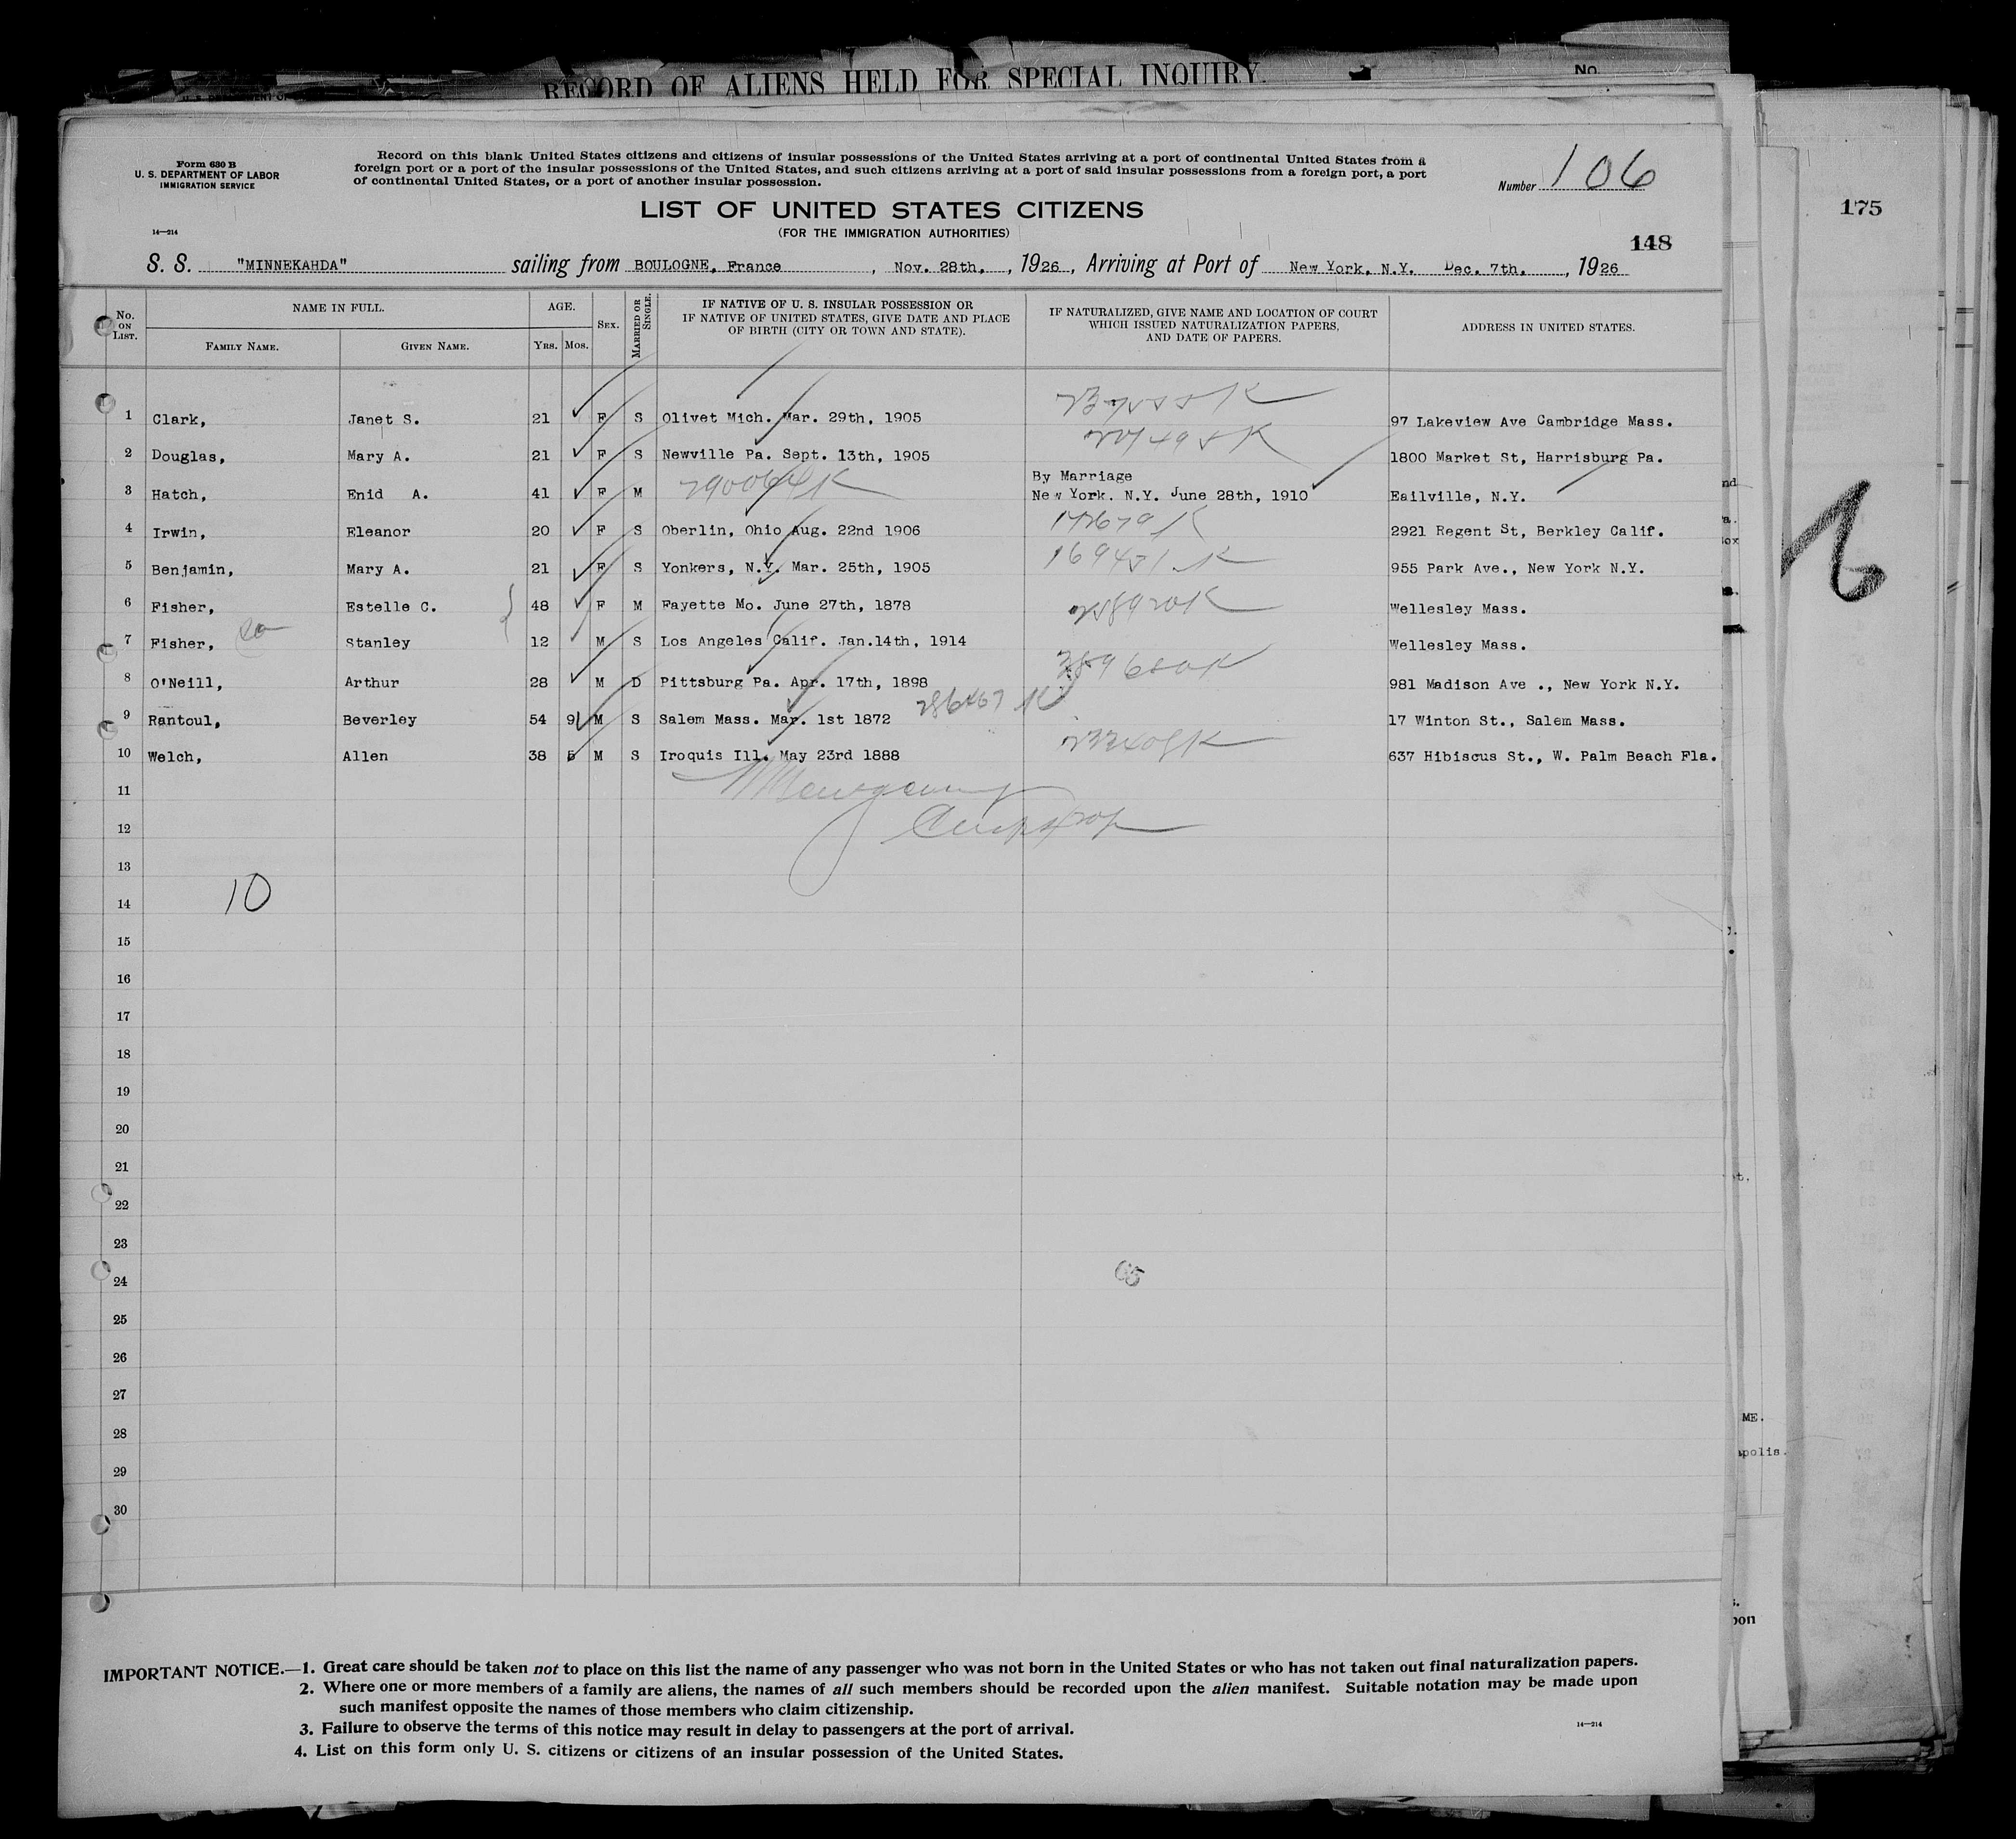 RECORD OF ALIENS HELD FOR SPECIAL INQUIRY.
No.
Form 630 B
U. S. DEPARTMENT OF LABOR
IMMIGRATION SERVICE
Record on this blank United States citizens and citizens of insular possessions of the United States arriving at a port of continental United States from a
foreign port or a port of the insular possessions of the United States, and such citizens arriving at a port of said insular possessions from a foreign port, a port
of continental United States, or a port of another insular possession.
Number 106
175
LIST OF UNITED STATES CITIZENS
(FOR THE IMMIGRATION AUTHORITIES)
14—214
148
S. S. "MINNEKAHDA" sailing from BOULOGNE, France, Nov. 28th, , 1926, Arriving at Port of New York, N.Y. Dec. 7th, , 1926
No. ON LIST. NAME IN FULL. AGE. SEX. MARRIED OR SINGLE. IF NATIVE OF U. S. INSULAR POSSESSION OR IF NATIVE OF UNITED STATES, GIVE DATE AND PLACE OF BIRTH (CITY OR TOWN AND STATE). IF NATURALIZED, GIVE NAME AND LOCATION OF COURT WHICH ISSUED NATURALIZATION PAPERS, AND DATE OF PAPERS. ADDRESS IN UNITED STATES.
FAMILY NAME. GIVEN NAME. YRS. MOS.
1 Clark, Janet S. 21 F S Olivet Mich. Mar. 29th, 1905 97 Lakeview Ave Cambridge Mass.
2 Douglas, Mary A. 21 F S Newville Pa. Sept. 13th, 1905 1800 Market St, Harrisburg Pa.
By Marriage
3 Hatch, Enid A. 41 F M 290064K New York. N.Y. June 28th, 1910 Eailville, N.Y.
4 Irwin, Eleanor 20 F S Oberlin, Ohio Aug. 22nd 1906 2921 Regent St, Berkley Calif.
5 Benjamin, Mary A. 21 F S Yonkers, N.Y. Mar. 25th, 1905 955 Park Ave., New York N.Y.
6 Fisher, Estelle C. 48 F M Fayette Mo. June 27th, 1878 Wellesley Mass.
7 Fisher, Stanley 12 M S Los Angeles Calif. Jan.14th, 1914 Wellesley Mass.
8 O'Neill, Arthur 28 M D Pittsburg Pa. Apr. 17th, 1898 981 Madison Ave ., New York N.Y.
9 Rantoul, Beverley 54 9 M S Salem Mass. Mar. 1st 1872 17 Winton St., Salem Mass.
10 Welch, Allen 38 5 M S Iroquis Ill. May 23rd 1888 637 Hibiscus St., W. Palm Beach Fla.
11
12
13
10
14
15
16
17
18
19
20
21
22
23
24
25
26
27
28
29
30
ME.
IMPORTANT NOTICE.—1. Great care should be taken not to place on this list the name of any passenger who was not born in the United States or who has not taken out final naturalization papers.
2. Where one or more members of a family are aliens, the names of all such members should be recorded upon the alien manifest. Suitable notation may be made upon
such manifest opposite the names of those members who claim citizenship.
3. Failure to observe the terms of this notice may result in delay to passengers at the port of arrival.
14—214
4. List on this form only U. S. citizens or citizens of an insular possession of the United States.